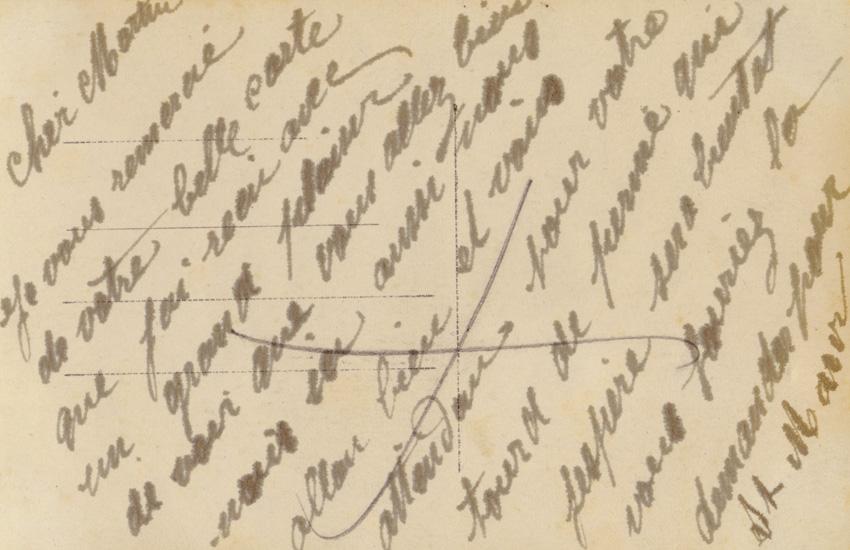 Cher Martin
Je vous remercié
de votre belle carte
que jai recu avec
un grand plaisir
de voir que vous allez bien
ici aussi nous
allon bien et vous
attendan pour votre
tour de permé qui
jespère sera bientot
vous pouriez la
demander pour
St Maur